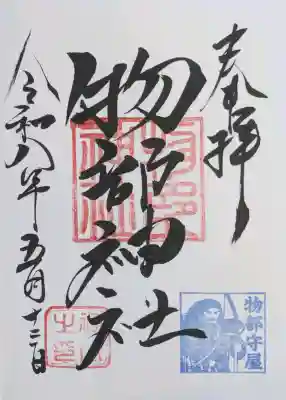 奉拝
物部神社
物部神社
令和八年五月十二日
物部守屋